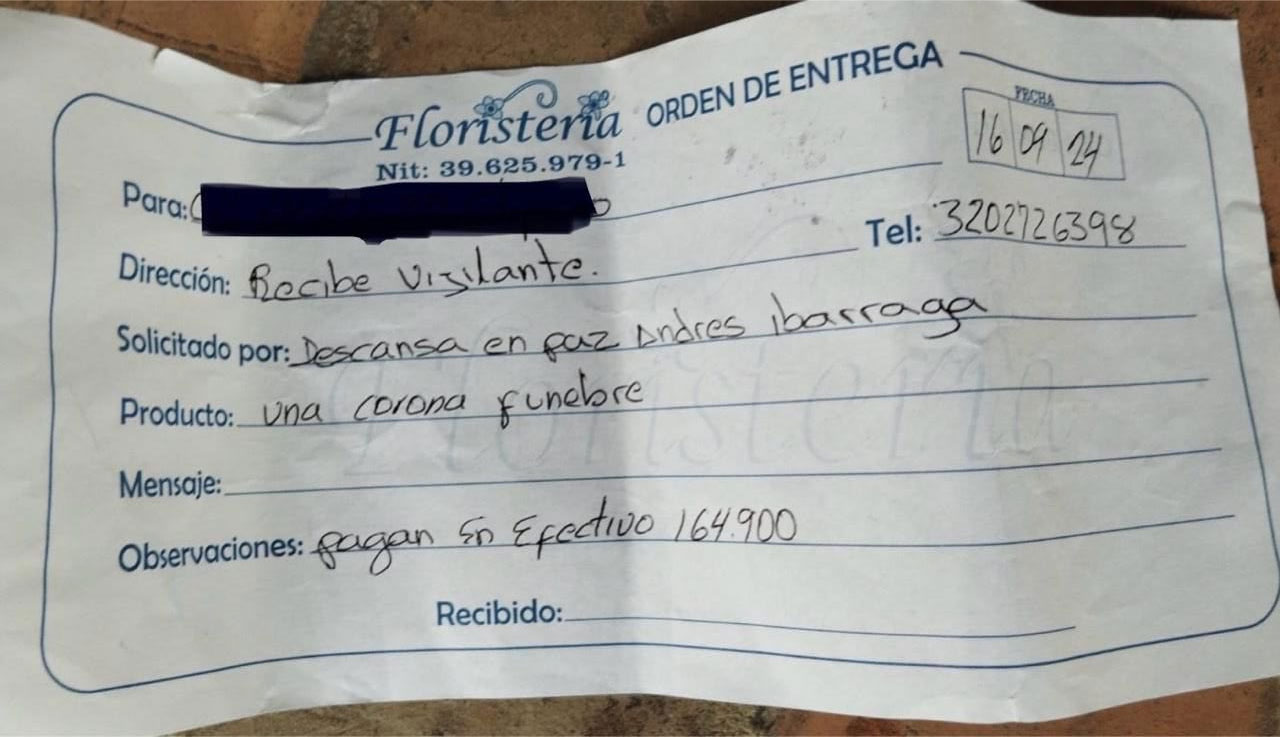 Floristería ORDEN DE ENTREGA
Nit: 39.625.979-1
FECHA
16 09 24
Para:
Tel: 3202726398
Dirección: Recibe Vigilante.
Solicitado por: Descansa en paz Andres ibarraga
Producto: una corona funebre
Mensaje:
Observaciones: pagan En Efectivo 164.900
Recibido:
Floristería